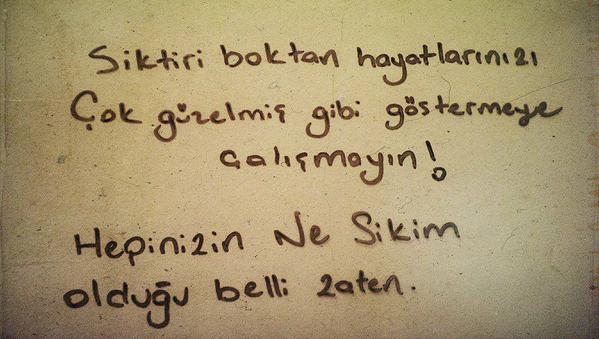 Siktiri boktan hayatlarınızı
Çok güzelmiş gibi göstermeye
çalışmayın!
Hepinizin Ne Sikim
olduğu belli zaten.